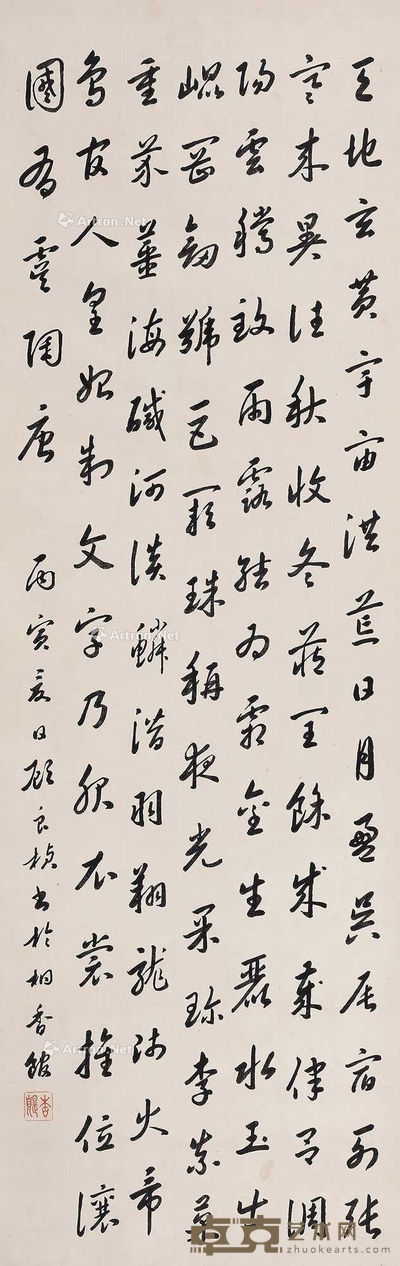 天地玄黄宇宙洪荒日月盈昃辰宿列張
寒來暑往秋收冬藏閏餘成歲律呂調
陽雲騰致雨露結為霜金生麗水玉出
崐岡劍號巨闕珠稱夜光果珍李柰菜
重芥薑海鹹河淡鱗潛羽翔龍師火帝
鳥官人皇始制文字乃服衣裳推位讓
國有虞陶唐
丙寅夏日顧良楨書於桐香館
Artron.Net
Artron.Net
Artron.Net
Artron.Net
Artron.Net
艺术网
zhuokearts.com